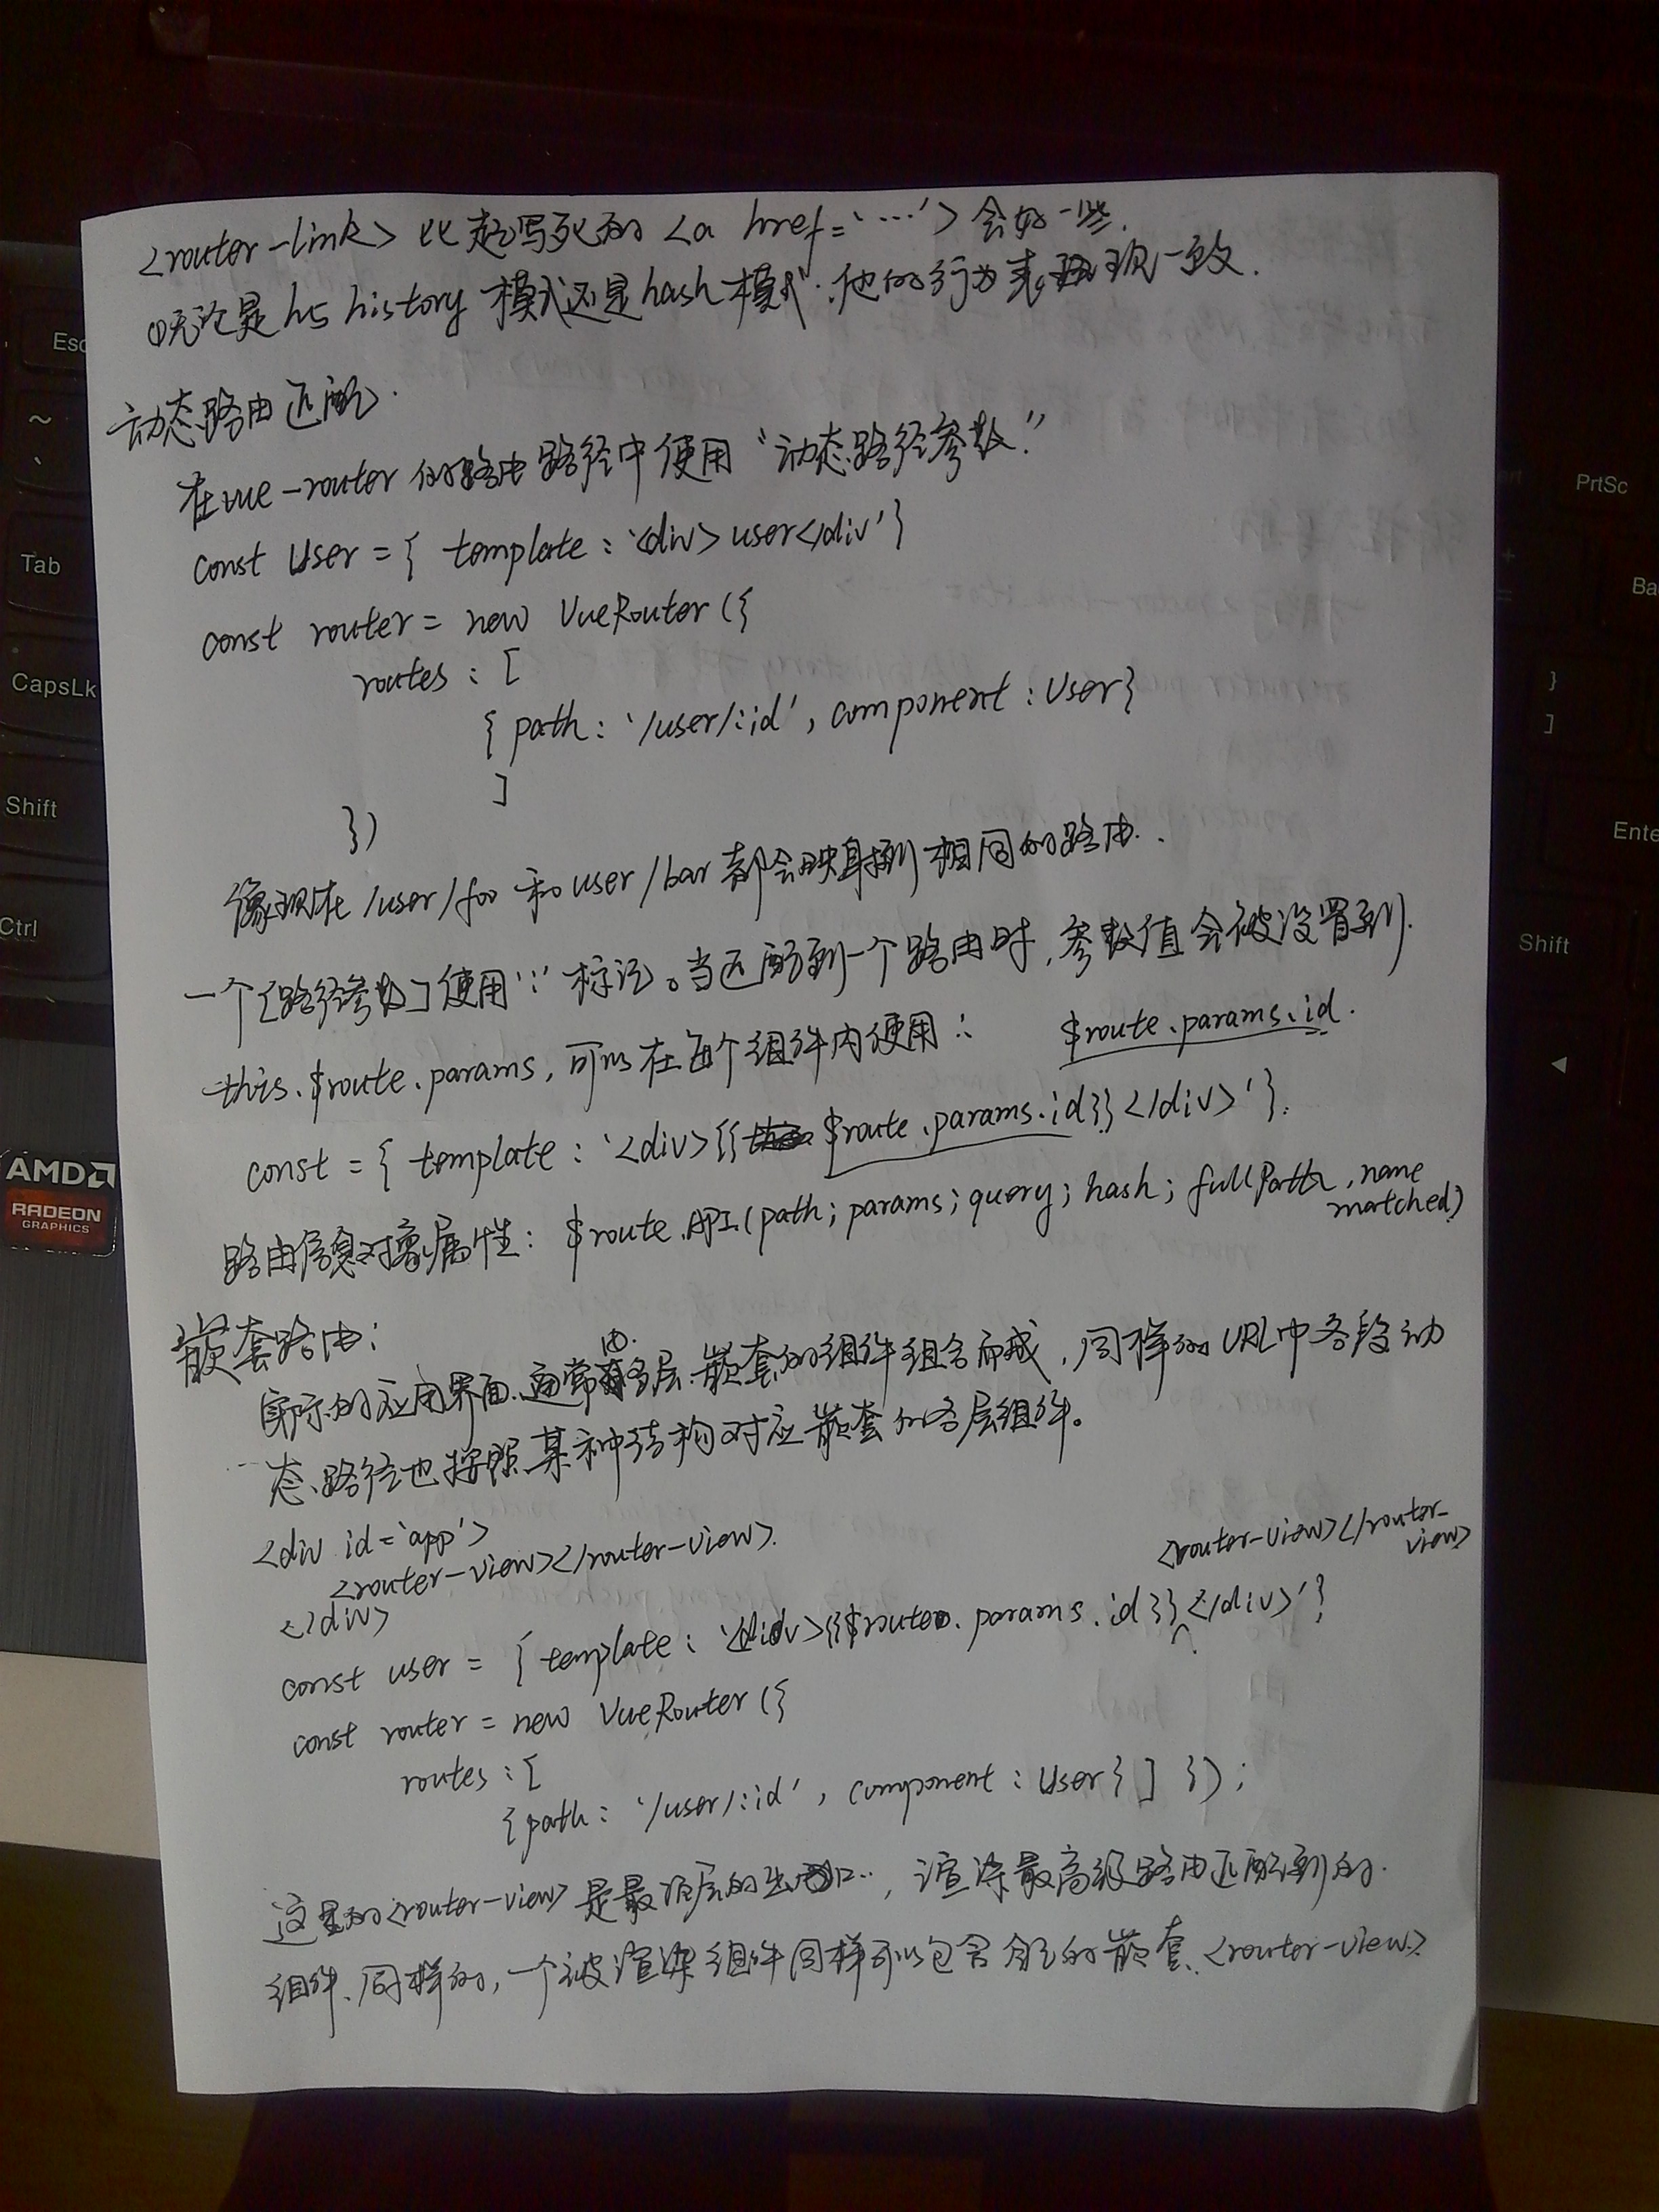 <router-link> 比起写死的 <a href='...'> 会好一些.
①无论是 h5 history 模式还是 hash 模式.他的行为表现一致.
动态路由匹配.
在vue-router 的路由路径中使用“动态路径参数.”
const User = { template : '<div> user</div'}
const router = new VueRouter ({
routes : [
{ path : '/user/:id' , component : User}
]
})
像现在 /user/foo 和 user/bar 都会映射到相同的路由..
一个[路径参数]使用':' 标记。当匹配到一个路由时,参数值会被设置到.
this.$route.params, 可以在每个组件内使用: $route.params.id.
const = { template : '<div>{{ $route.params.id}}</div>'}.
路由信息对象属性: $route.API.(path; params; query; hash; fullPath, name
matched)
嵌套路由:
实际的应用界面.通常由多层.嵌套的组件组合而成,同样的URL中各段动
态、路径也按照某种结构对应嵌套的各层组件。
<div id='app'>
<router-view></router-view>.
</div>
<router-view></router-
view>
const user = { template : '<div>{{$route. params.id}}</div>'}
const router = new VueRouter ({
routes : [
{path : '/user/:id' , component : User } ] }) ;
这里的<router-view> 是最顶层的出口.., 渲染最高级路由匹配到的.
组件、同样的, 一个被渲染组件同样可以包含自己的嵌套、<router-view>
Esc
~
`
Tab
CapsLk
Shift
Ctrl
AMD
RADEON
GRAPHICS
PrtSc
Ba
}
]
Ente
Shift